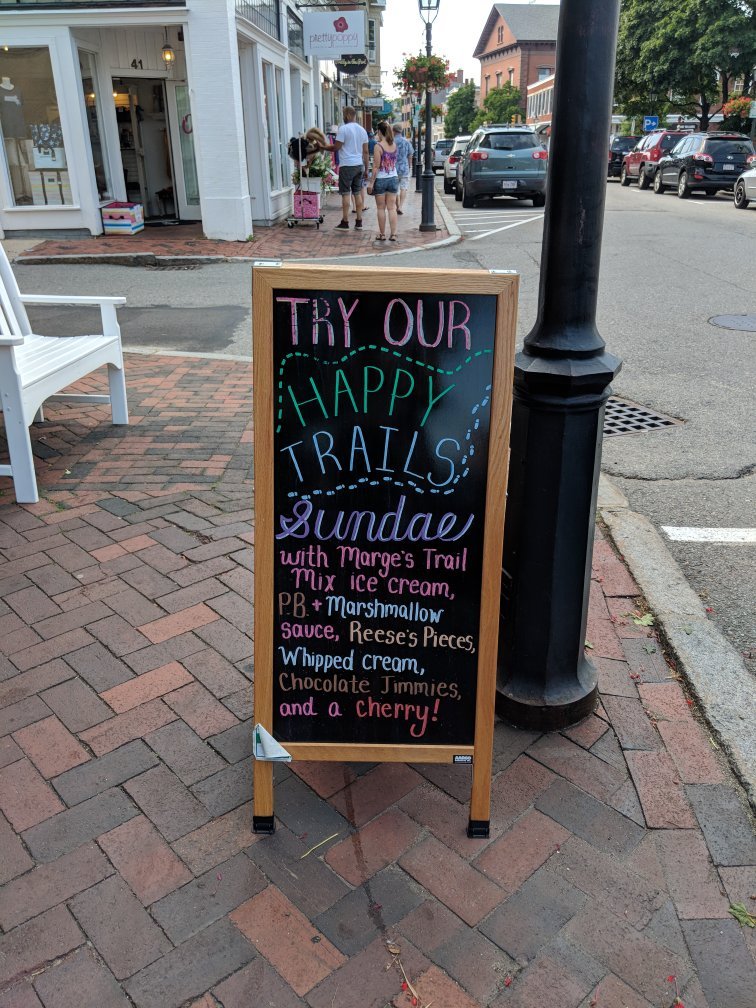 41
prettypoppy
TRY OUR
HAPPY
TRAILS
Sundae
with Marge's Trail
Mix ice cream,
P.B. + Marshmallow
sauce, Reese's Pieces,
Whipped cream,
Chocolate Jimmies,
and a cherry!